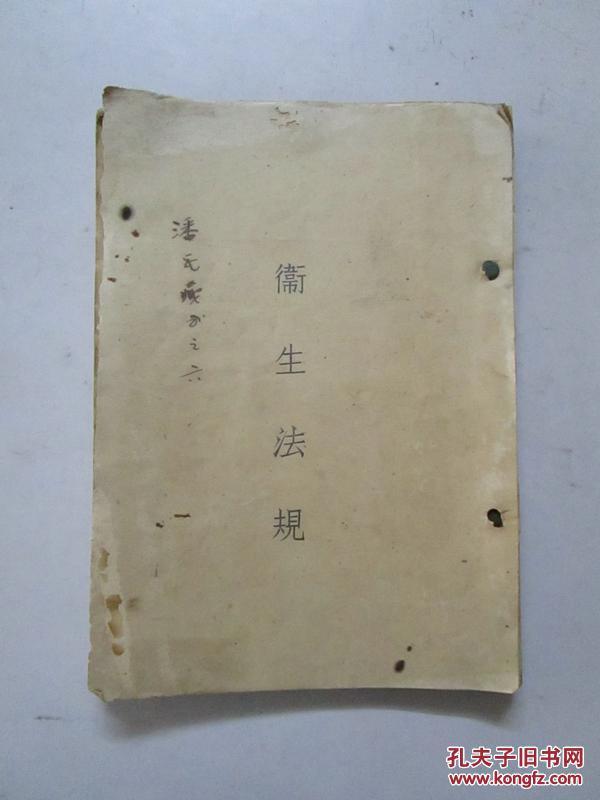 衞生法規
潘氏藏書之六
孔夫子旧书网
www.kongfz.com